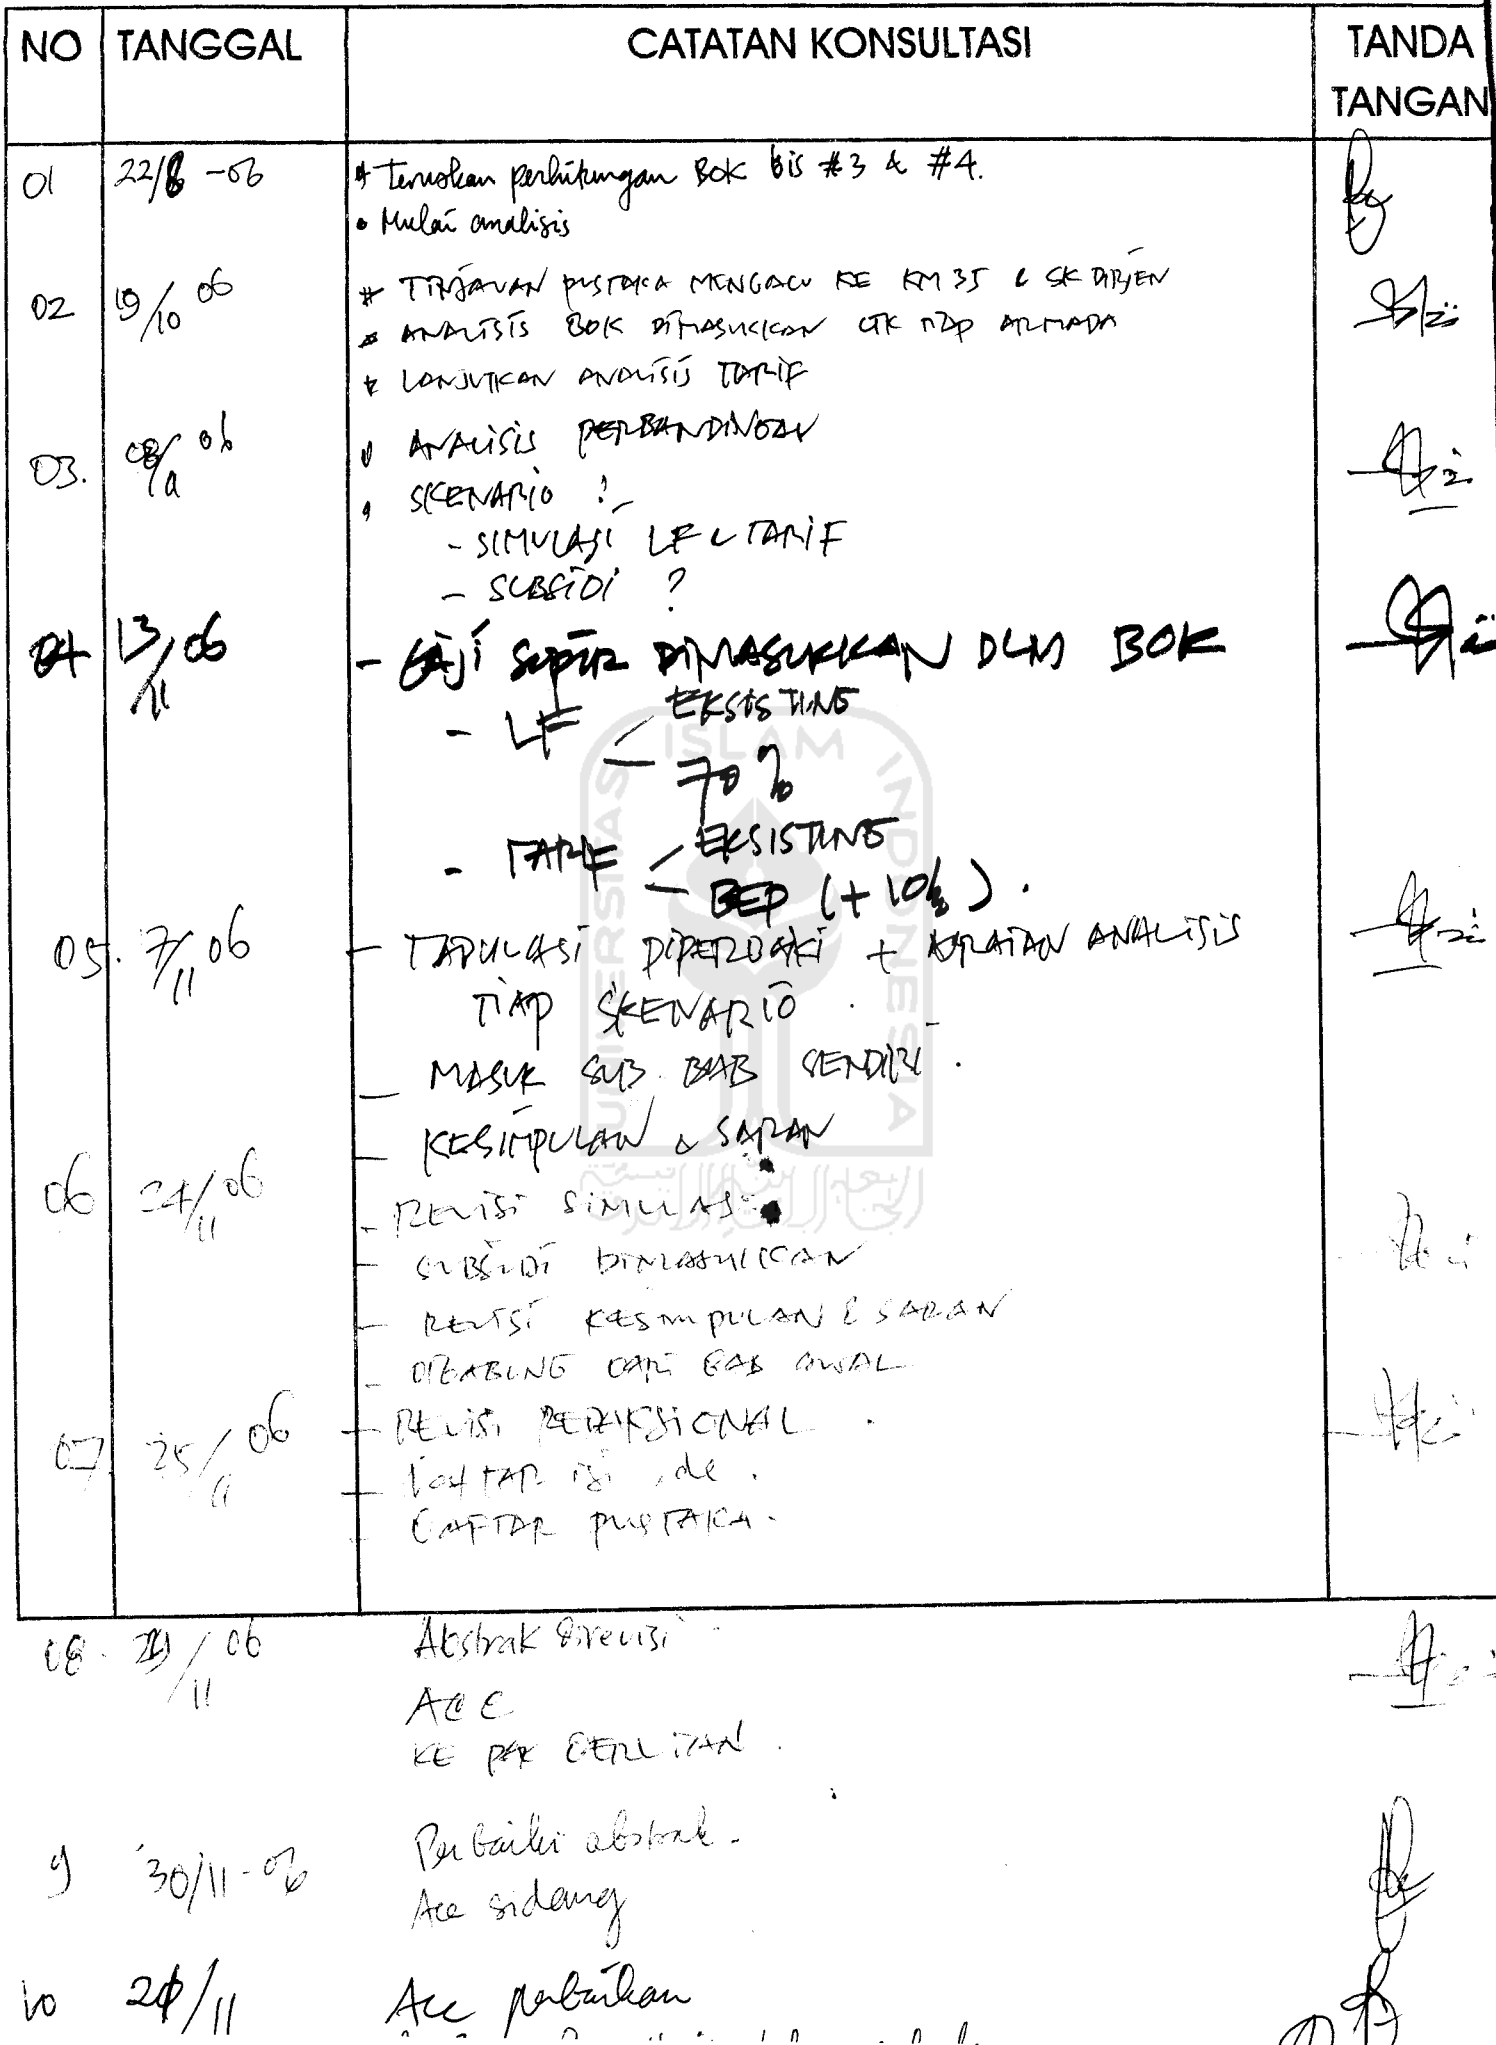 NO TANGGAL CATATAN KONSULTASI TANDA TANGAN
01 22/8 -06 * Teruskan perhitungan BOK bis #3 & #4.
• Mulai analisis
02 19/10 06 * TINJAUAN PUSTAKA MENGACU KE KM 35 & SK DIRJEN
* ANALISIS BOK DIMASUKKAN UTK TIAP ARMADA
* LANJUTKAN ANALISIS TARIF
03. 06 ANALISIS PERBANDINGAN
SKENARIO :
- SIMULASI LF & TARIF
- SUBSIDI ?
04 13/11 06 - GAJI SUPIR DIMASUKKAN DLM BOK
- LF < EKSISTING
70%
- TARIF < EKSISTING
BEP (+ 10%).
05. 7/11 06 - TABULASI DIPERBAIKI + ANALISIS
TIAP SKENARIO.
- MASUK SUB. BAB SENDIRI.
- KESIMPULAN & SARAN
06 24/11 06 - REVISI SIMULASI
- SUBSIDI DIMASUKKAN
- REVISI KESIMPULAN & SARAN
- DIGABUNG DARI BAB AWAL
07 25/11 06 - REVISI REDAKSIONAL.
- DAFTAR ISI
- DAFTAR PUSTAKA.
UNIVERSITAS ISLAM INDONESIA
08. 06 Abstrak direvisi
ACC
KE PAK
9 30/11-06 Perbaiki abstrak.
Acc sidang
10 Acc perbaikan